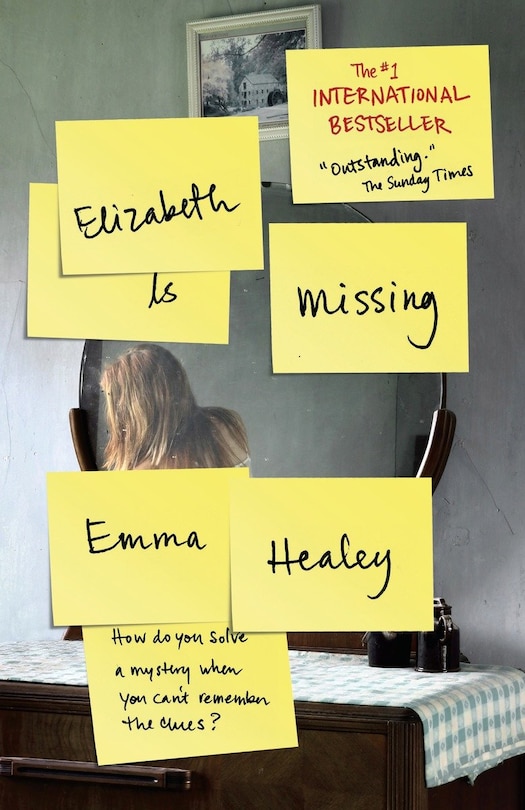 The #1
INTERNATIONAL
BESTSELLER
"Outstanding."
The Sunday Times
Elizabeth
Is
missing
Emma
Healey
How do you solve
a mystery when
you can't remember
the clues?